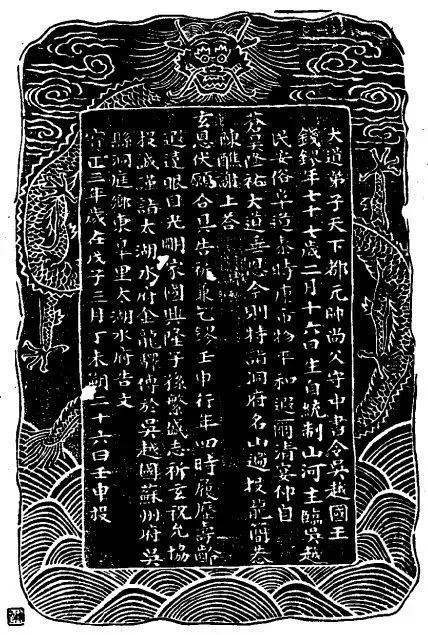 大道弟子天下都元帥尚父守中書令吳越國王
錢鏐年七十七歲二月十六日生自統制山河主臨吳越
民安俗阜道泰時康市物平和遐邇清宴仰自
蒼昊降祐大道垂恩今則特詣洞府名山遍投龍簡恭
陳醮謝上答
玄恩伏願合具告祈兼乞鏐壬申行年四時履歷壽齡
遐遠眼目光明家國興隆子孫繁盛志祈玄祝允協
投誠謹詣太湖水府金龍驛傳於吳越國蘇州府吳
縣洞庭鄉東皋里太湖水府告文
寶正三年歲在戊子三月丁未朔二十六日壬申投